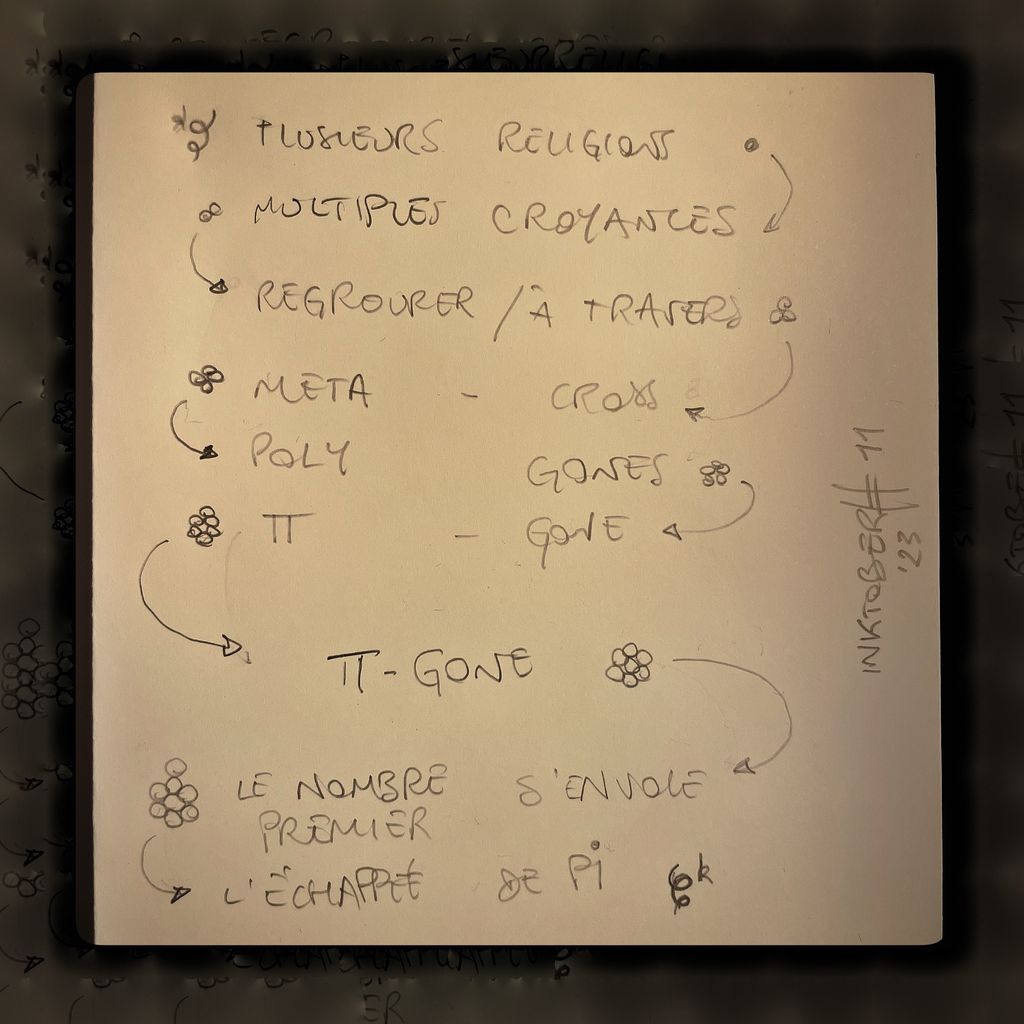 PLUSIEURS RELIGIONS
MULTIPLES CROYANCES
REGROUPER / À TRAVERS
META - CROSS
POLY GONES
π - GONE
π - GONE
LE NOMBRE S'ENVOLE
PREMIER
L'ÉCHAPPÉE DE Pi
INKTOBER # 11
'23